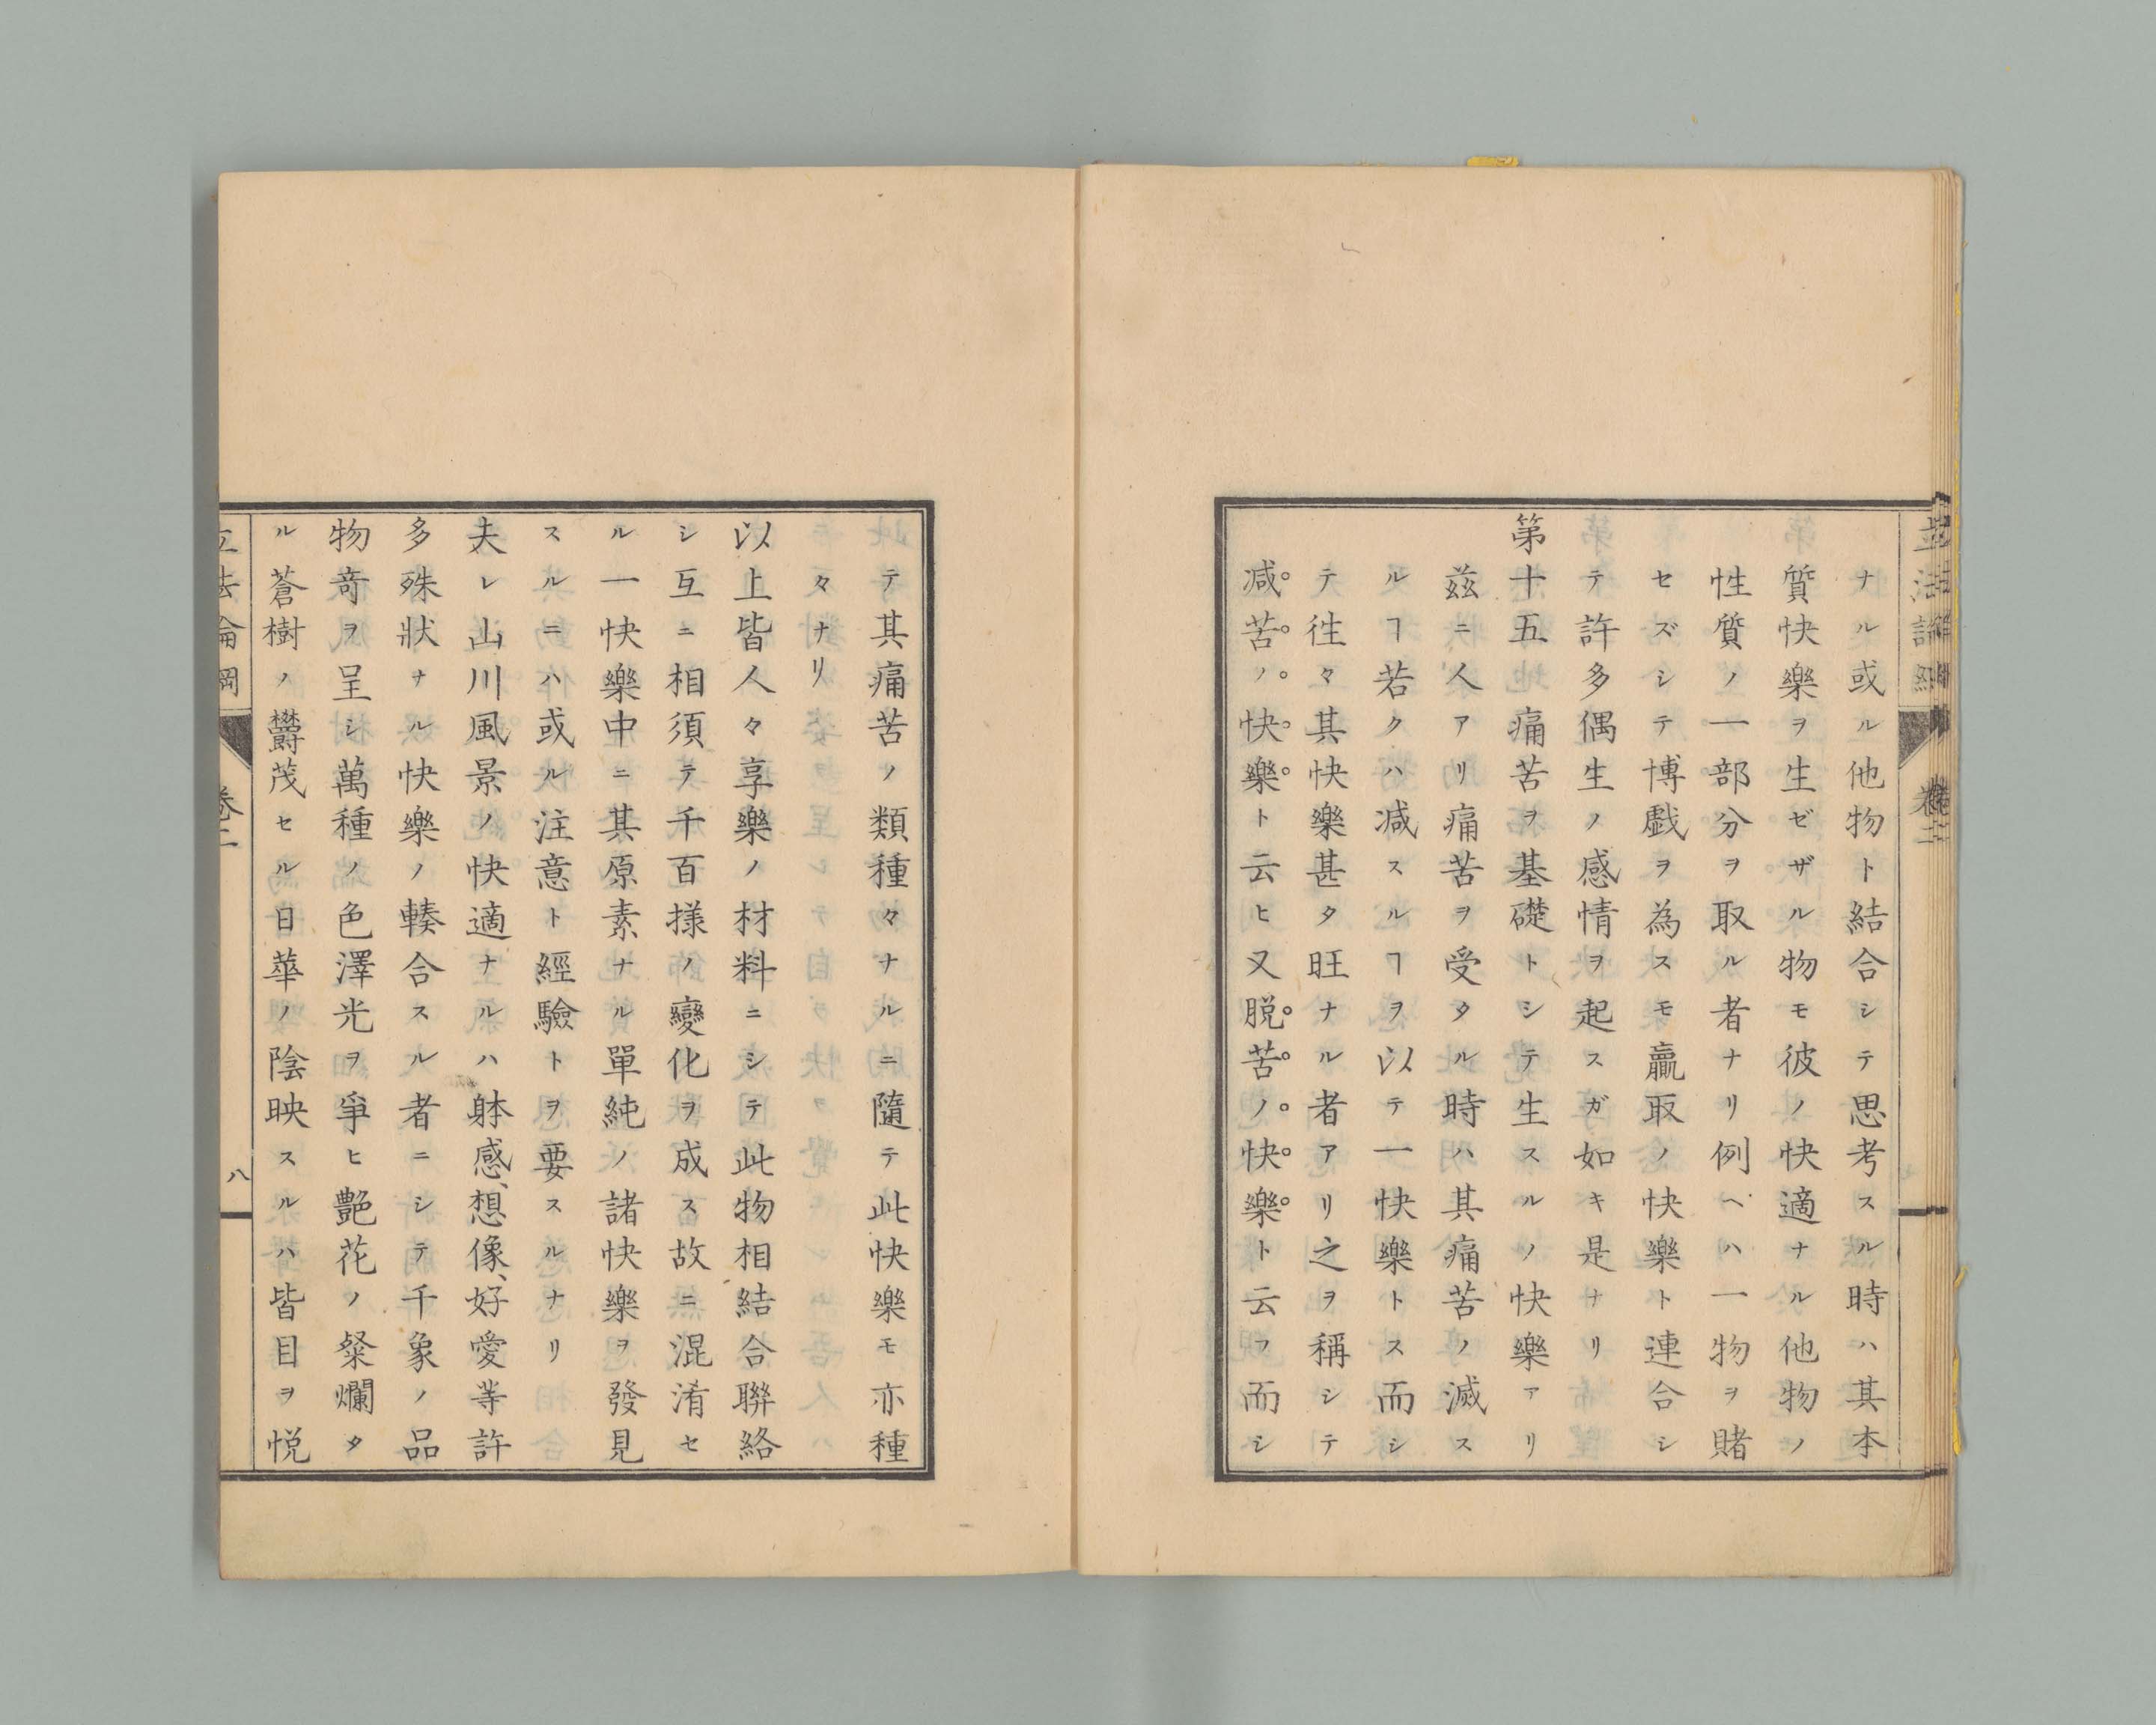 ナル或ル他物ト結合シテ思考スル時ハ其本
質快樂ヲ生ゼザル物モ彼ノ快適ナル他物ノ
性質ノ一部分ヲ取ル者ナリ例ヘハ一物ヲ賭
セズシテ博戯ヲ為スモ贏取ノ快樂ト連合シ
テ許多偶生ノ感情ヲ起スガ如キ是ナリ
第十五痛苦ヲ基礎トシテ生スルノ快樂アリ
茲ニ人アリ痛苦ヲ受タル時ハ其痛苦ノ滅ス
ルヿ若クハ减スルヿヲ以テ一快樂トス而シ
テ徃々其快樂甚タ旺ナル者アリ之ヲ稱シテ
减苦ノ快樂ト云ヒ又脱苦ノ快樂ト云フ而シ
テ其痛苦ノ類種々ナルニ隨テ此快樂モ亦種
々ナリ
以上皆人々享樂ノ材料ニシテ此物相結合聯絡
シ互ニ相須テ千百様ノ變化ヲ成ス故ニ混淆セ
ル一快樂中ニ其原素ナル單純ノ諸快樂ヲ發見
スルニハ或ル注意ト經驗トヲ要スルナリ
夫レ山川風景ノ快適ナルハ躰感、想像、好愛等許
多殊狀ナル快樂ノ輳合スル者ニシテ千象ノ品
物竒ヲ呈シ萬種ノ色澤光ヲ爭ヒ艶花ノ粲爛タ
ル蒼樹ノ欝茂セル日華ノ陰映スルハ皆目ヲ悦
立法論綱
卷二
八